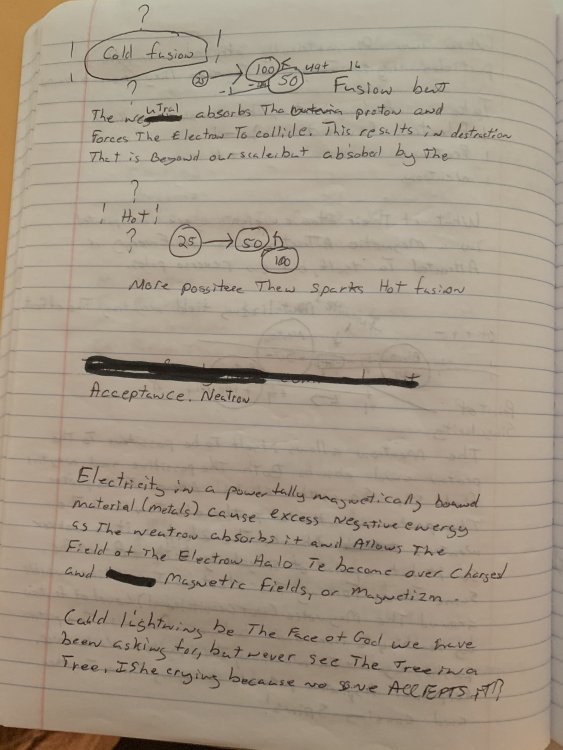 ?
! Cold fusion !
! !
?
25 → 100 50
-1
Fusion but
The neutral absorbs The proton and
Forces The Electron To collide. This results in destruction
That is Beyond our scale but absobel by The
?
! Hot !
?
25 → 50 100
More possiteee Thew sparks Hot fusion
Acceptance. Neatron
Electricity in a powerfally magnetically bound
material (metals) cause excess negative energy
as The neatron absorbs it and Allows The
Field of The Electron Halo To become over Charged
and Magnetic Fields, or Magnetizm.
Could lightning be The Face of God we have
been asking for, but never see The Tree in a
Tree. Is he crying because no one ACCEPTS iT??